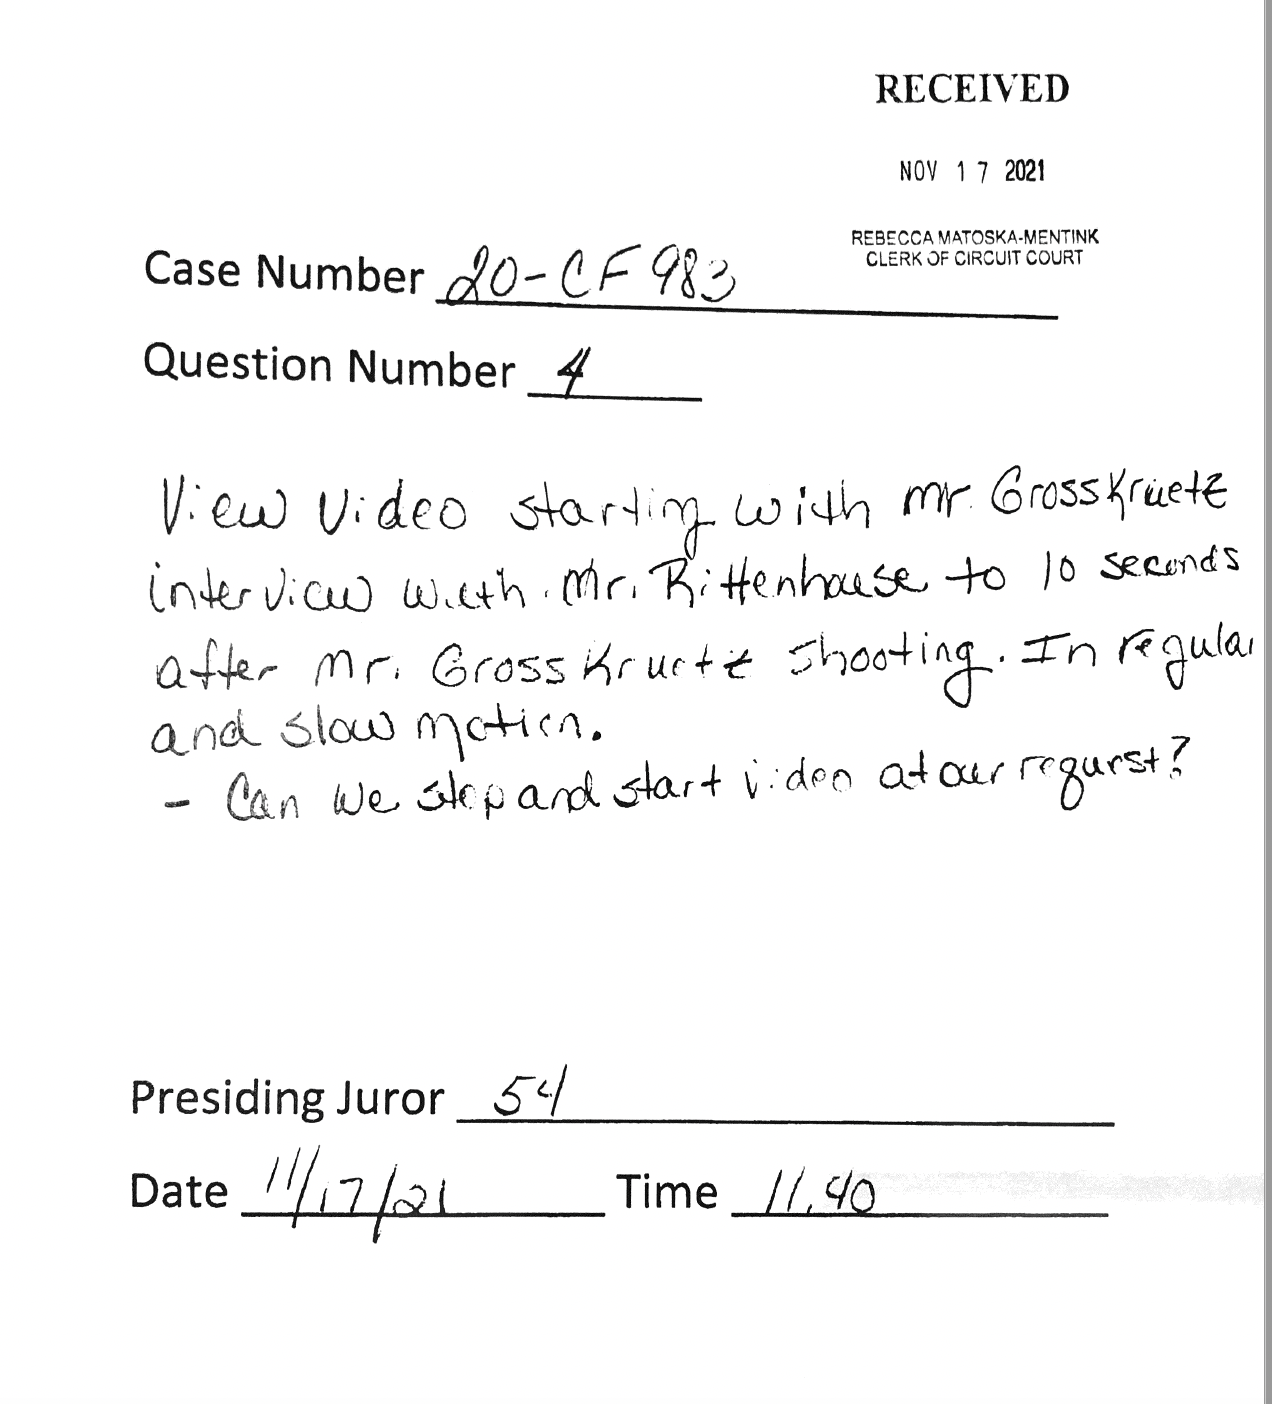 RECEIVED
NOV 17 2021
REBECCA MATOSKA-MENTINK
CLERK OF CIRCUIT COURT
Case Number 20-CF 983
Question Number 4
View Video starting with mr. GrossKruetz
interview with Mr. Rittenhouse to 10 seconds
after Mr. GrossKruetz shooting. In regular
and slow motion.
- Can we stop and start video at our request?
Presiding Juror 54
Date 11/17/21 Time 11.40